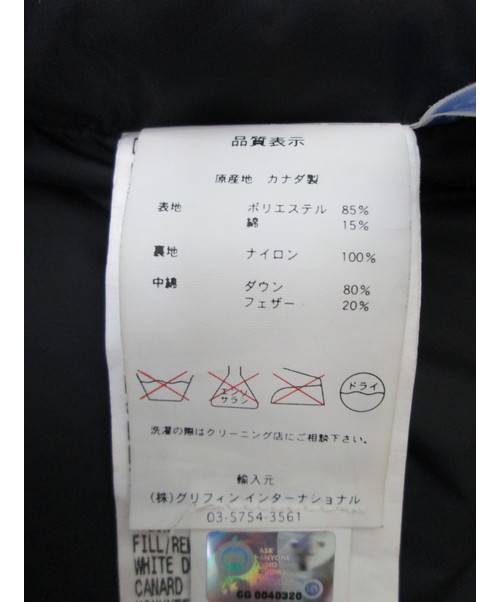 品質表示
原産地 カナダ製
表地 ポリエステル 85%
綿 15%
裏地 ナイロン 100%
中綿 ダウン 80%
フェザー 20%
エンソ
サラシ
ドライ
洗濯の際はクリーニング店にご相談下さい。
輸入元
(株)グリフィン インターナショナル
03-5754-3561
FILL/REM
WHITE D
CANARD
ASK
CG 0040320